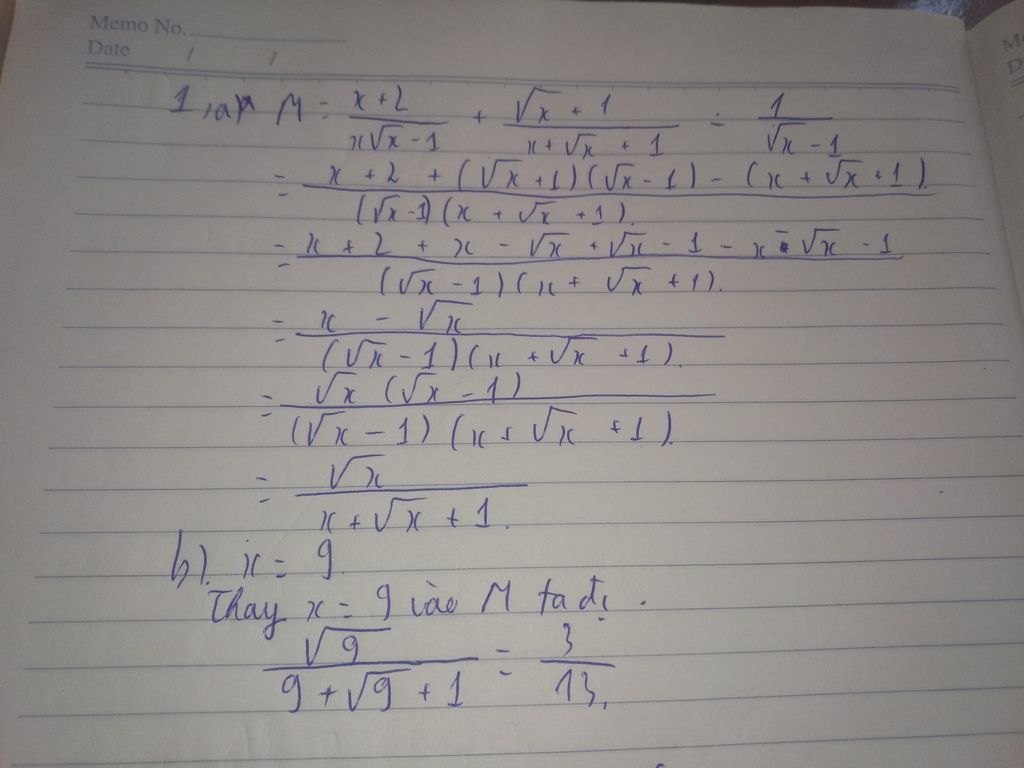 Memo No.
Date / /
1, a) M = \frac{x+2}{x\sqrt{x}-1} + \frac{\sqrt{x}+1}{x+\sqrt{x}+1} - \frac{1}{\sqrt{x}-1}
= \frac{x+2+(\sqrt{x}+1)(\sqrt{x}-1)-(x+\sqrt{x}+1)}{(\sqrt{x}-1)(x+\sqrt{x}+1)}
= \frac{x+2+x-\sqrt{x}+\sqrt{x}-1-x-\sqrt{x}-1}{(\sqrt{x}-1)(x+\sqrt{x}+1)}
= \frac{x-\sqrt{x}}{(\sqrt{x}-1)(x+\sqrt{x}+1)}
= \frac{\sqrt{x}(\sqrt{x}-1)}{(\sqrt{x}-1)(x+\sqrt{x}+1)}
= \frac{\sqrt{x}}{x+\sqrt{x}+1}
b). x = 9
Thay x = 9 vào M ta đc.
\frac{\sqrt{9}}{9+\sqrt{9}+1} = \frac{3}{13}